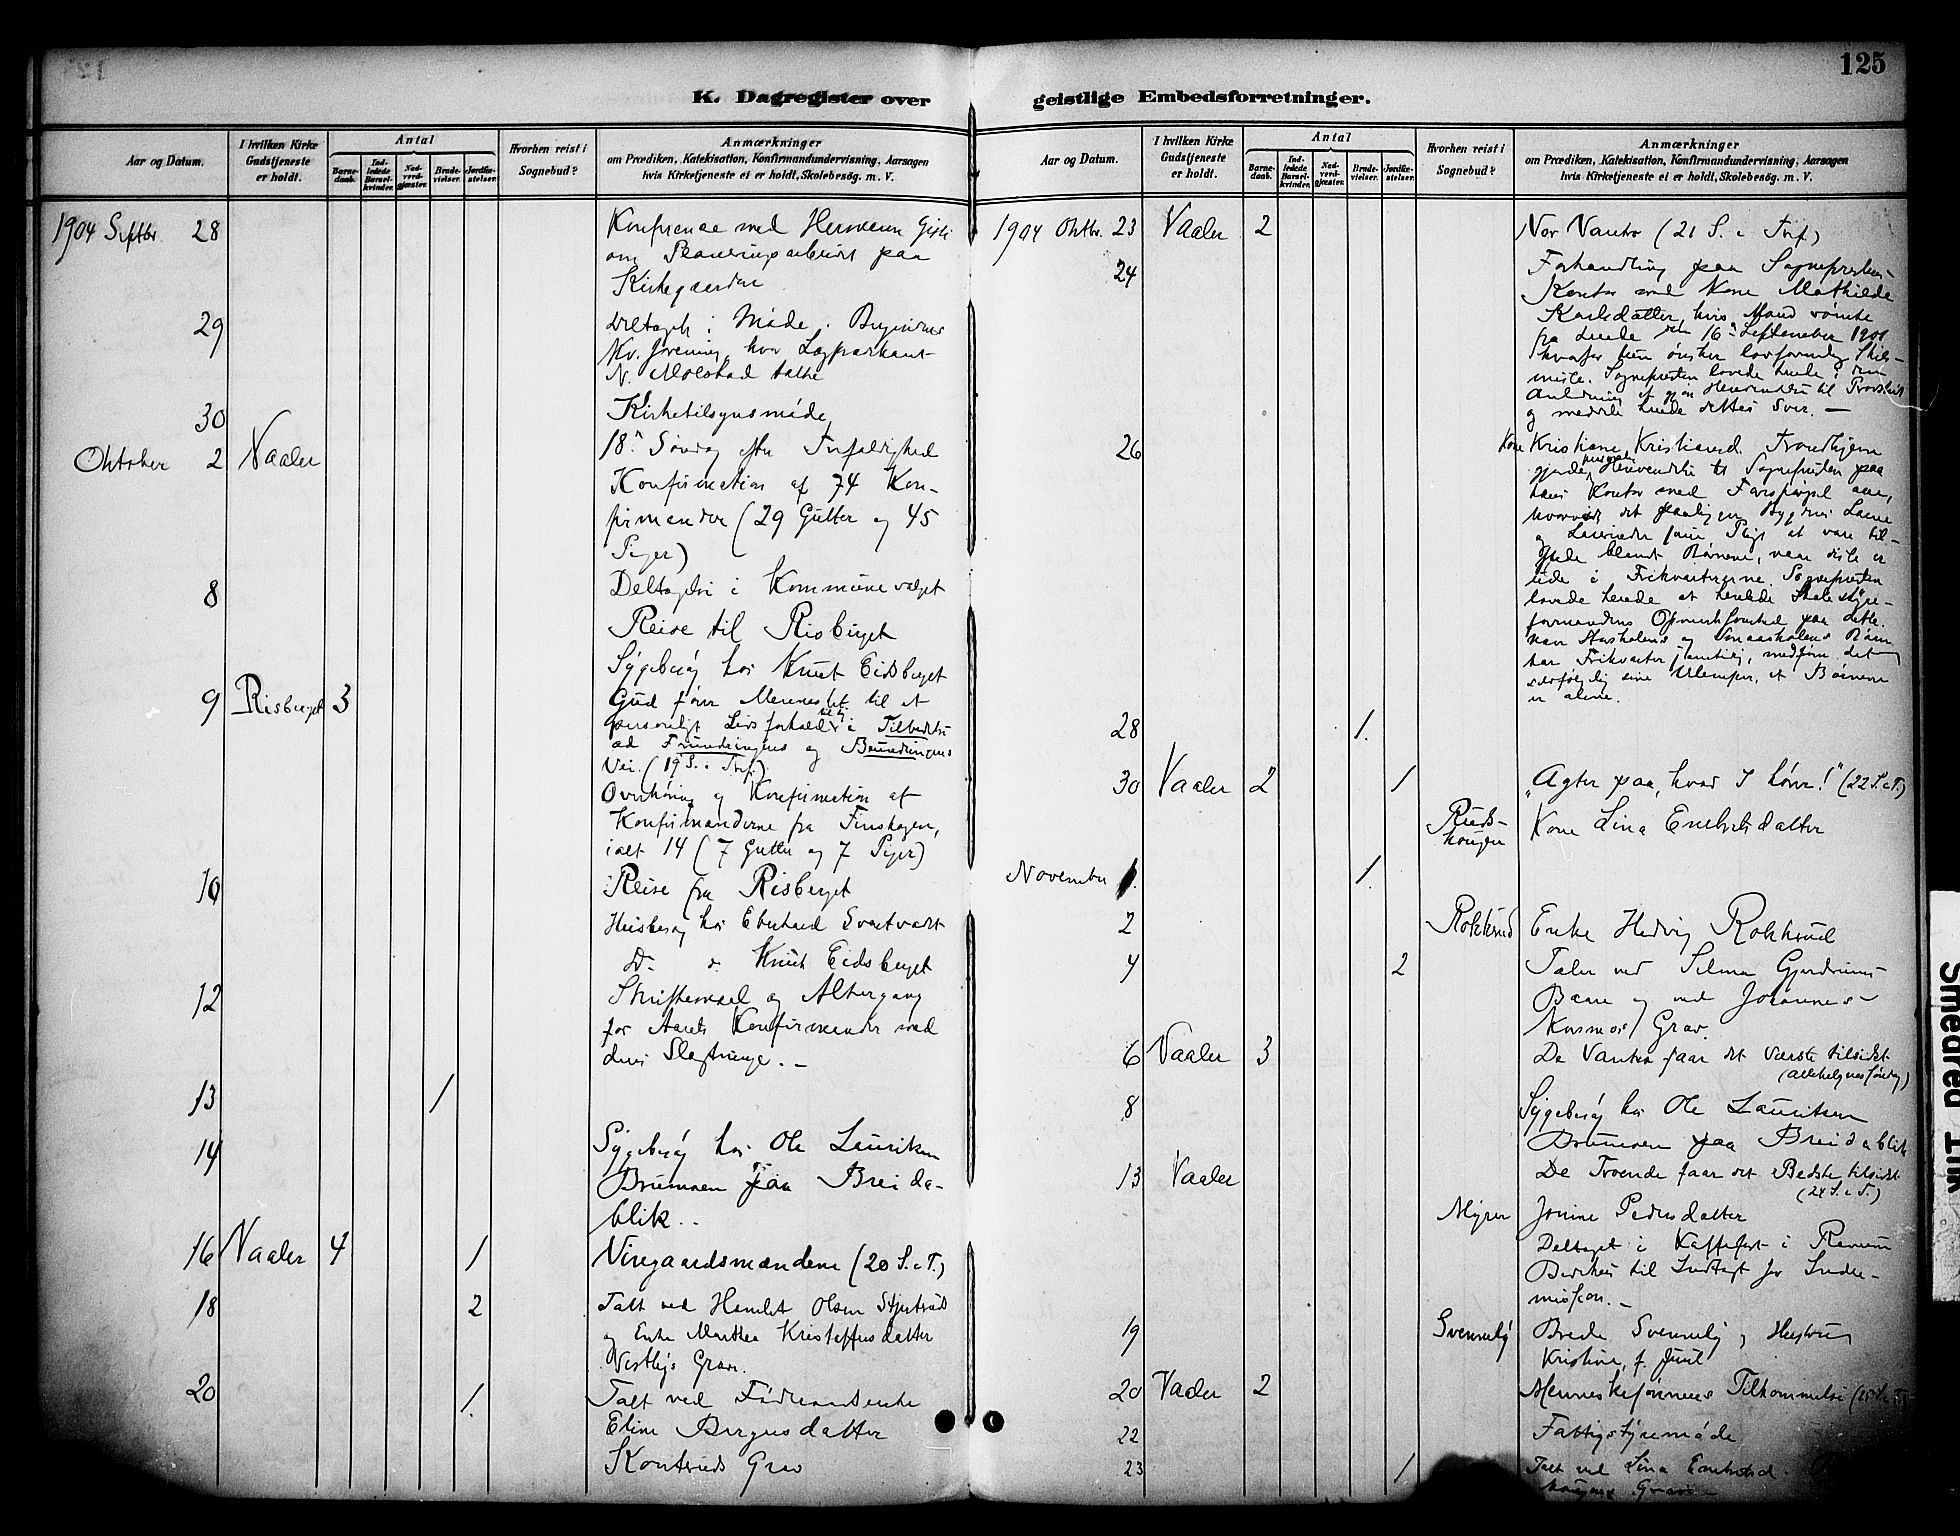 125
K. Dagregister over geistlige Embedsforretninger.
Aar og Datum.
I hvilken Kirke Gudstjeneste er holdt.
Antal
Barne-daab.
Ind-ledede Barsel-kvinder.
Nad-verd-gjæster.
Brude-vielser.
Jordfæ-stelser.
Hvorhen reist i Sognebud?
Anmærkninger
om Prædiken, Katekisation, Konfirmandundervisning, Aarsagen
hvis Kirketjeneste ei er holdt, Skolebesøg. m. V.
1904 Septbr. 28 Konferense med Hermann
om Planeringsarbeidet paa
Kirkegaarden
29 Deltaget i Møde i
Kv. forening, hvor
N. Molstad talte
30 Kirketilsynsmøde
Oktober 2 Vaaler 18de Søndag efter Trefoldighed
Konfirmation af 74 Kon-
firmander (29 Gutter og 45
Piger)
8 Deltaget i Kommunevalget
Reise til Risberget
Sygebesøg hos Knut Eidsberget
9 Risberget 3 Gud fører Mennesket til et
personligt Livsforhold til sig i Tilbedelse
ad Forundringens og Beundringens
Vei. (19 S. e. Tref.)
Overhøring og Konfirmation af
Konfirmanderne fra Finskogen,
ialt 14 (7 Gutter og 7 Piger)
10 Reise fra Risberget
Husbesøg hos Eberhard Svartvadt
Do. Knut Eidsberget
12 Skriftemaal og Altergang
for Aarets Konfirmander med
deres Slegtninge. –
13 1
14 Sygebesøg hos Ole Lauritsen
Brumoen paa Breida-
blik.
16 Vaaler 4 1 Vingaardsmændene (20 S. e. T.)
18 2 Talt ved Hamlet Olsen
og Enke Marthea Kristoffersdatter
Vestbys Grav.
20 1. Talt ved
Eline Bergersdatter
Konterud Grav
Aar og Datum.
I hvilken Kirke Gudstjeneste er holdt.
Antal
Barne-daab.
Ind-ledede Barsel-kvinder.
Nad-verd-gjæster.
Brude-vielser.
Jordfæ-stelser.
Hvorhen reist i Sognebud?
Anmærkninger
om Prædiken, Katekisation, Konfirmandundervisning, Aarsagen
hvis Kirketjeneste ei er holdt, Skolebesøg. m. V.
1904 Oktbr. 23 Vaaler 2 Vor Vantro (21 S. e. Tref.)
24 Forhandling paa Sogneprestens
Kontor med Kone Mathilde
Karlsdatter, hvis Mand rømte
fra hende den 16de September 1901
hvorfor hun ønsker lovformelig Skils-
misse. Sognepresten lovede hende i den
Anledning at gjøre Henvendelse til Provsten
og meddele hende dettes Svar. –
26 Kone Kristiane Kristiansd. Trondhjem
gjorde personlig Henvendelse til Sognepresten paa
hans Kontor med Forespørgsel om,
hvorvidt det paaligger Bygdens Lærere
og Lærerinder som Pligt at være til-
stede blandt Børnene, naar disse er
ude i Frikvartererne. Sognepresten
lovede hende at henlede Skolestyre-
formandens Opmerksomhed paa dette.
naar Storskolens og Smaaskolens Børn
har Frikvarter samtidig, medfører det
selvfølgelig sine Ulemper, at Børnene
er alene.
28 1.
30 Vaaler 2 1 "Agter paa, hvad I hører!" (22 S. e. T.)
Ruds-
haugen Kone Lina Enebretsdatter
November 1. 1.
2 Rokkerud Enke Hedvig Rokkerud
4 2 Taler ved Selma Gjerdrums
Baare og ved Johannes
Kusmos Grav
6 Vaaler 3 De Vantro faar det Værste tilsidst
(Allehelgenssøndag)
8 Sygebesøg hos Ole Lauritsen
Brumoen paa Breidablik
13 Vaaler De Troende faar det Bedste tilsidst
(24 S. e. T.)
Myrer Jonine Pedersdatter
Deltaget i Kaffefest i
til Indtægt for Indre-
mission. –
19 Svenneby Brede Svenneby og Hustru
Kristine, f. Juul
20 Vaaler 2 Menneskesønnens Tilkommelse (25 S. e. T.)
22 Fattigstyremøde
23 1 Talt ved Lina Enebretsd.
Grav –
Smedred